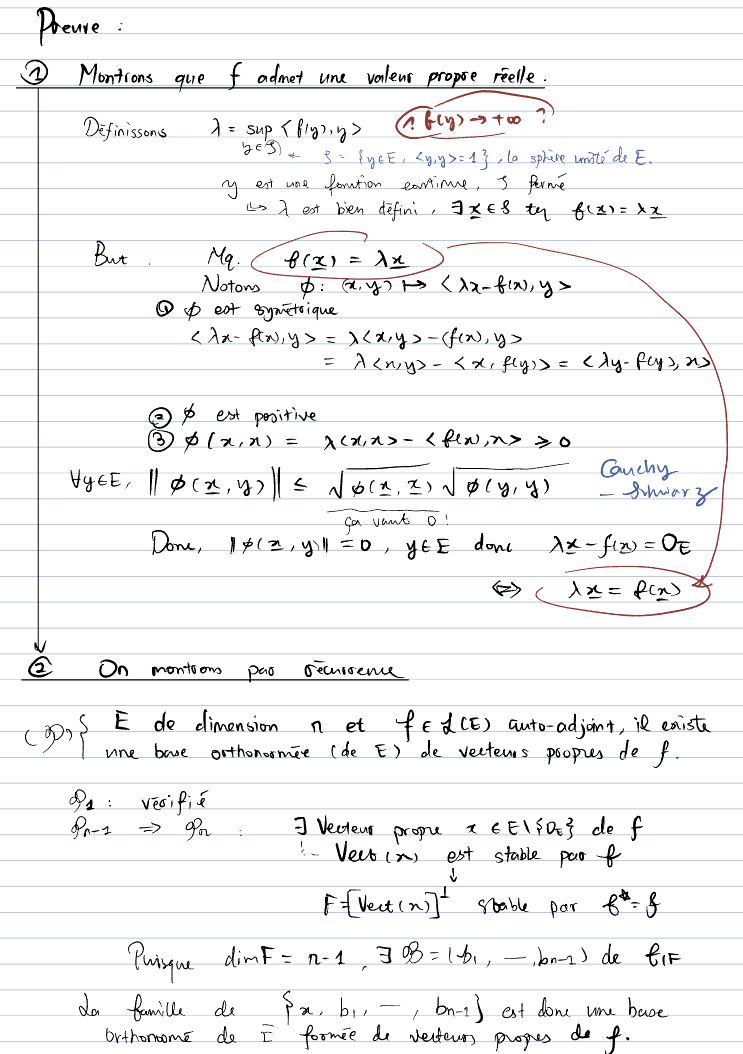 Preuve :
① Montrons que f admet une valeur propre réelle.
Définissons λ = sup <f(y), y> y∈S
? f(y) → +∞ ?
S = {y∈E, <y,y>=1}, la sphère unité de E.
y est une fonction continue, S fermé
↳ λ est bien défini, ∃ x ∈ S tq f(x) = λx
But . Mq. f(x) = λx
Notons ϕ: (x,y) ↦ <λx-f(x), y>
① ϕ est symétrique
<λx- f(x), y> = λ<x,y> - (f(x), y>
= λ<x,y> - <x, f(y)> = <λy-f(y), x>
② ϕ est positive
③ ϕ(x,x) = λ<x,x> - <f(x),x> ⩾ 0
∀y∈E, ‖ϕ(x,y)‖ ≤ √ϕ(x,x) √ϕ(y,y)
Cauchy
- Schwarz
ça vaut 0!
Donc, ‖ϕ(x,y)‖ = 0, y∈E donc λx - f(x) = 0E
⟺ λx = f(x)
② On montrons par récurrence
(𝒫n) { E de dimension n et f ∈ ℒ(E) auto-adjoint, il existe
une base orthonormée (de E) de vecteurs propres de f.
𝒫1 : vérifié
𝒫n-1 ⇒ 𝒫n : ∃ Vecteur propre x ∈ E\{0E} de f
!- Vect(x) est stable par f
↓
F=[Vect(x)]⊥ stable par f*=f
Puisque dimF = n-1, ∃ ℬ = (b1, —, bn-1) de f|F
La famille de {x, b1, —, bn-1} est donc une base
orthonomé de E formée de vecteurs propres de f.